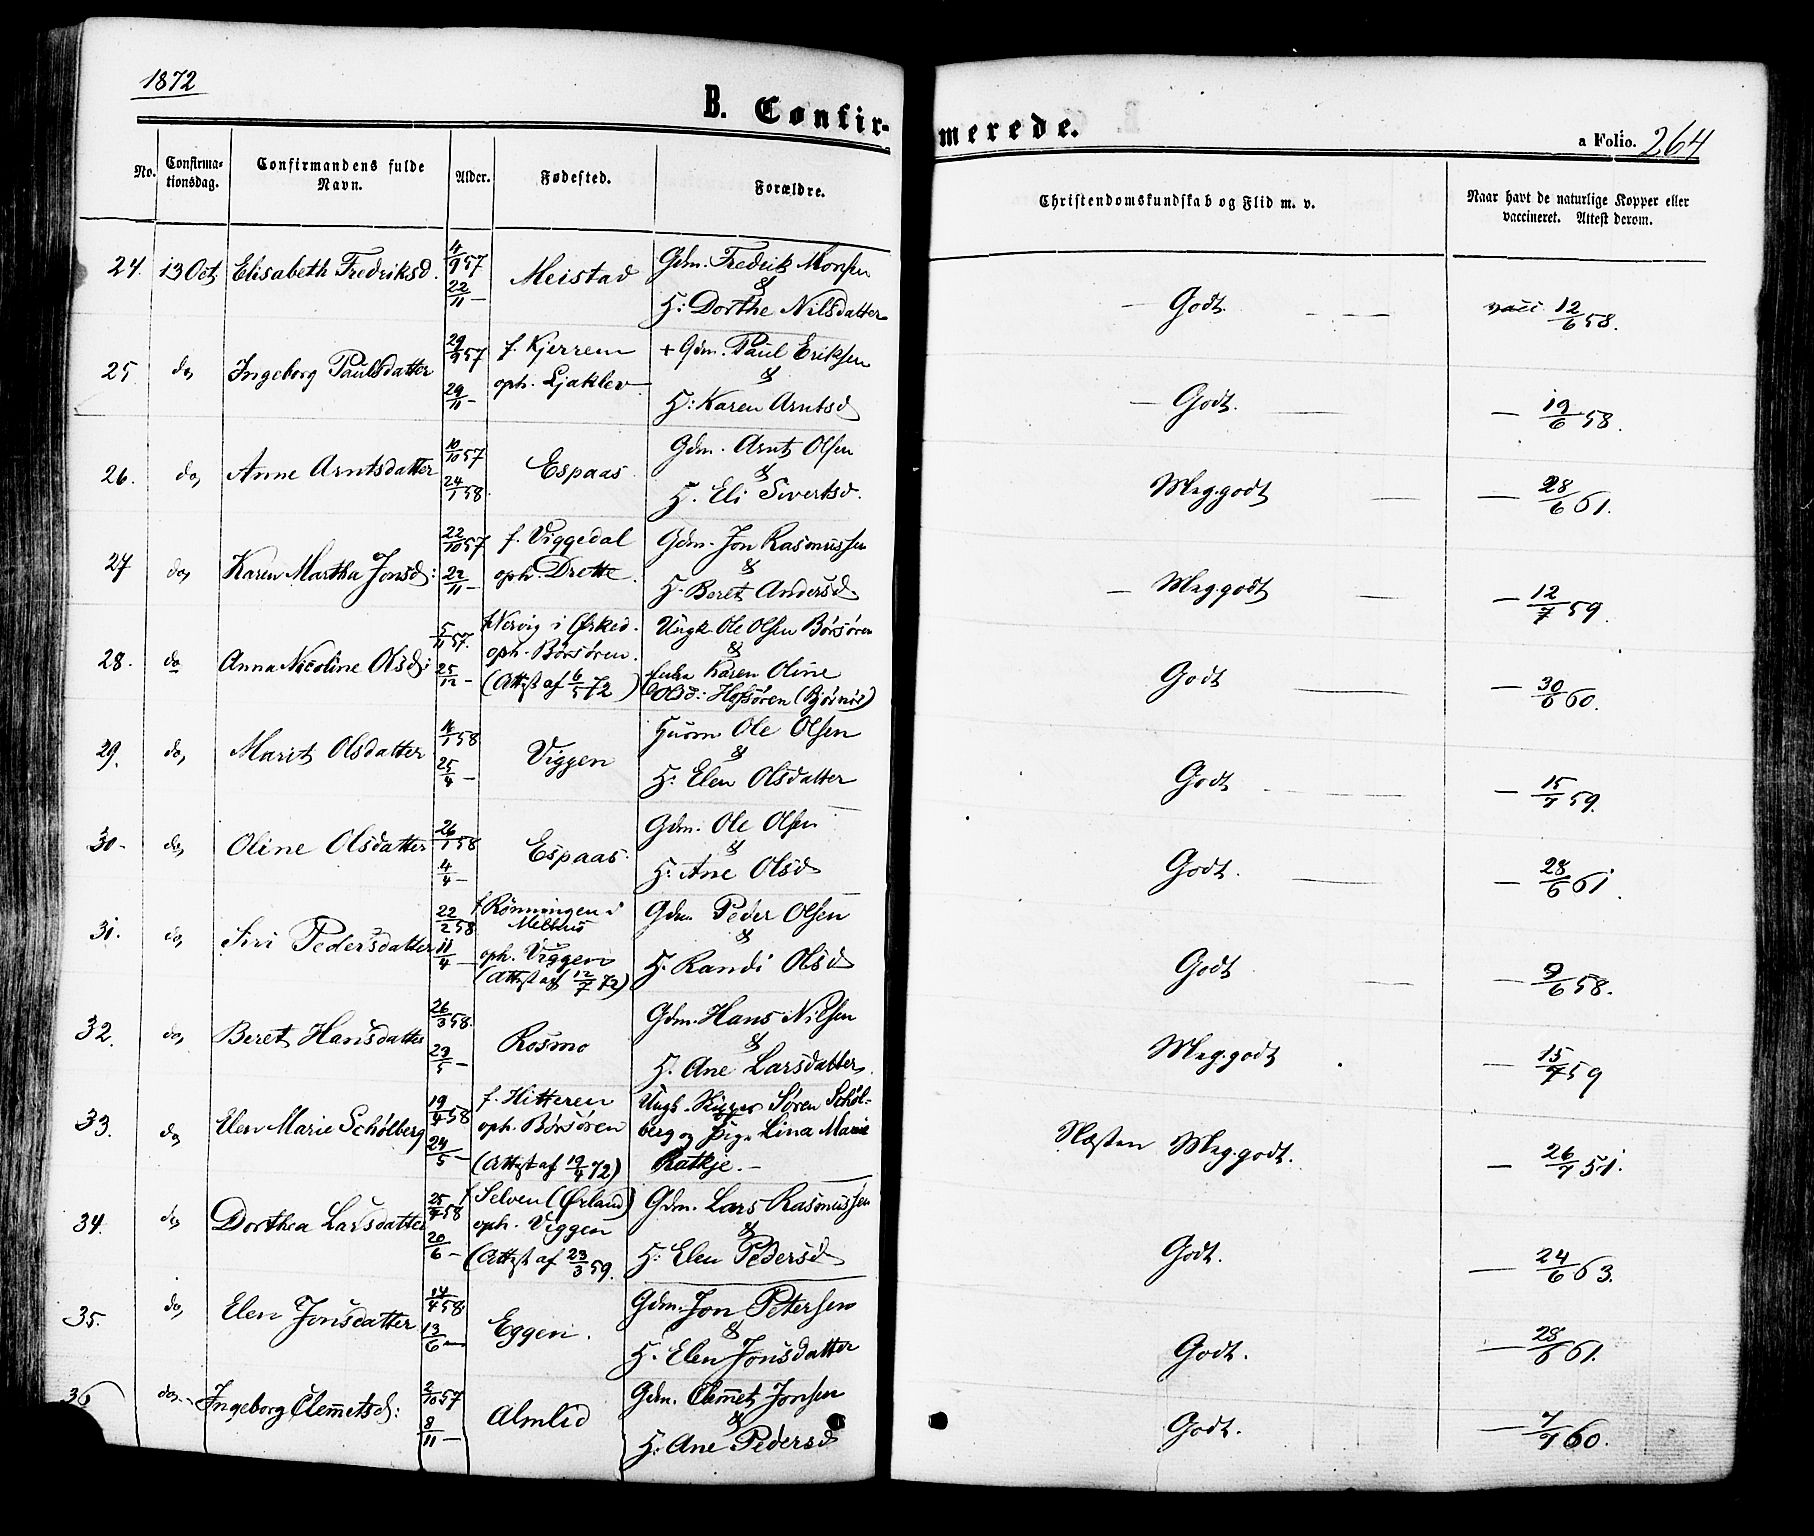 1872
B. Confirmerede.
a Folio. 264
No. Confirmationsdag. Confirmandens fulde Navn. Alder. Fødested. Forældre. Christendomskundskab og Flid m. v. Naar havt de naturlige Kopper eller vaccineret. Attest derom.
24. 13 Oct Elisabeth Fredriksd. 4/9 57 22/11 — Meistad Gdm. Fredrik Monsen & H: Dorthe Nilsdatter — Godt. — vacc 12/6 58.
25 do, Ingeborg Paulsdatter 29/9 57 29/11 — f. Kjerrem oph. Ljaklev + Gdm. Paul Eriksen & H: Karen Arntsd — Godt. — — 19/6 58.
26. do, Anne Arntsdatter 10/10 57 24/1 58. Espaas Gdm. Arnt Olsen & H. Eli Sivertsd. Meg.godt — — 28/6 61.
27 do, Karen Martha Jonsd: 22/10 57 22/11 — f. Viggedal oph. Drette. Gdm. Jon Rasmussen & H. Beret Andersd — Meg.godt — — 12/7 59.
28. do Anna Nicoline Olsd: 5/11 57. 25/12 — f. Nervig i Ørked. oph. Børsøren. (Attest af 6/5 72) Ungk. Ole Olsen Børsøren & Karen Oline Olsd: Hofsøren Godt — — 30/6 60.
29. do, Marit Olsdatter 58 25/4 — Viggen Huusm Ole Olsen & H: Elen Olsdatter Godt — — 15/7 59.
30- do, Oline Olsdatter 26/1 58 4/4 — Espaas. Gdm. Ole Olsen & H: Ane Olsd Godt. — — 28/6 61
31. do, Siri Pedersdatter 22/2 58 11/4 — f. Rønningen i Melhus oph. Viggen (Attest af 12/7 72) Gdm. Peder Olsen & H. Randi Olsd Godt — — 9/6 58.
32. do, Beret Hansdatter 26/3 58. 29/5 — Rosmo Gdm. Hans Nilsen & H. Ane Larsdatter. Meg.godt — 15/7 59
33. do, Elen Marie Schølberg 19/4 58 24/5 — f. Hitteren oph. Børsøren (Attest af 19/4 72) Ungk. Søren Schølberg og Pige Lina Marie Ratkje. — Næsten Meg.godt. — 26/7 51.
34. do, Dorthea Larsdatter 25/4 58 20/6 — f. Selven (Ørland) oph. Viggen (Attest af 23/3 59. Gdm. Lars Rasmussen & H: Elen Pedersd Godt. — 24/6 63.
35. do, Elen Jonsdatter 14/4 58 13/6 — Eggen. Gdm. Jon Petersen & H. Elen Jonsdatter Godt. — 28/6 61.
36 do, Ingeborg Clemetsd: 2/10 57 8/11 — Almlid Gdm. Clemet Jonsen & H. Ane Pedersd Godt. — 7/7 60.